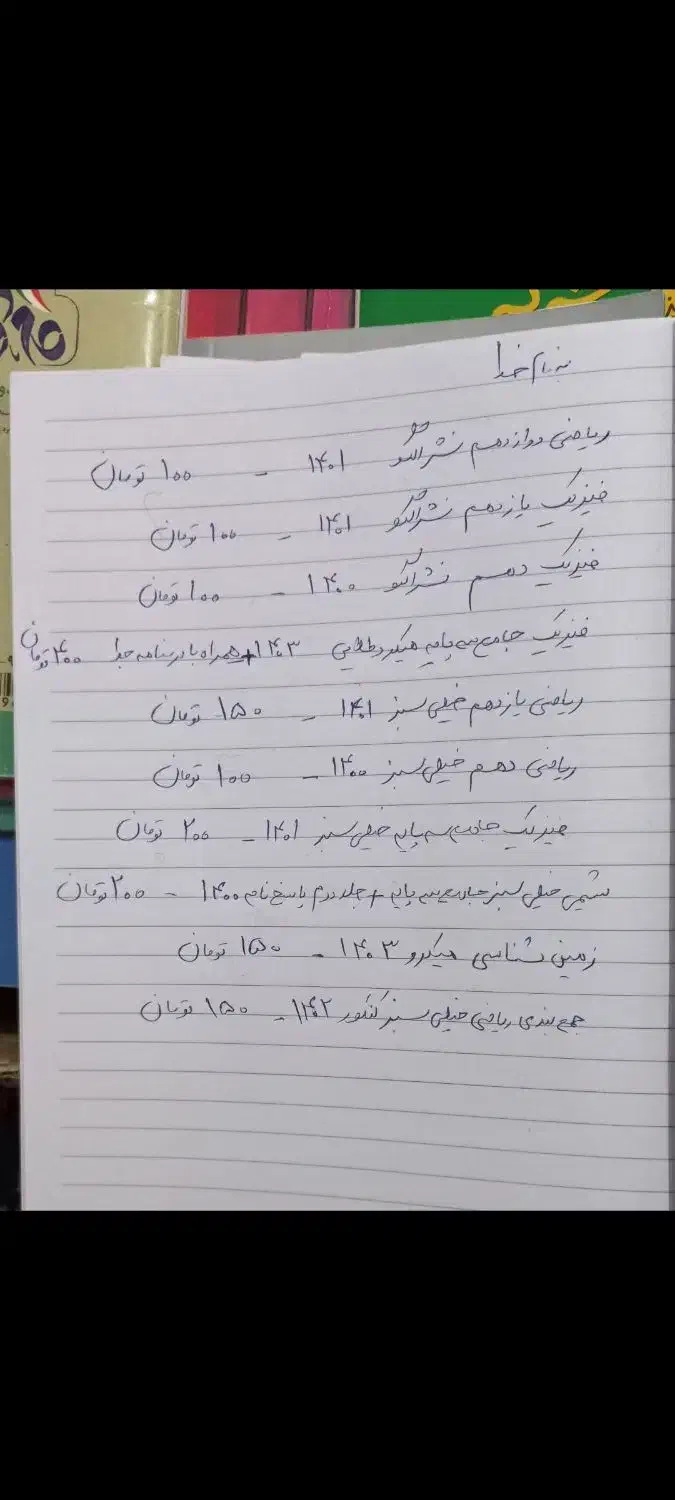 به نام خدا
ریاضی دوازدهم نشرالگو ۱۴۰۱ - ۱۰۰ تومان
فیزیک یازدهم نشرالگو ۱۴۰۱ - ۱۰۰ تومان
فیزیک دهم نشرالگو ۱۴۰۰ - ۱۰۰ تومان
فیزیک جامع سه پایه میکروطلایی ۱۴۰۳ + همراه با درسنامه جدا ۴۰۰ تومان
ریاضی یازدهم خیلی سبز ۱۴۰۱ - ۱۵۰ تومان
ریاضی دهم خیلی سبز ۱۴۰۰ - ۱۰۰ تومان
فیزیک جامع سه پایه خیلی سبز ۱۴۰۱ - ۲۰۰ تومان
شیمی خیلی سبز جامع سه پایه + جلد دوم پاسخ نامه ۱۴۰۰ - ۲۰۰ تومان
زمین شناسی میکرو ۱۴۰۳ - ۱۵۰ تومان
جمع بندی ریاضی خیلی سبز کنکور ۱۴۰۲ - ۱۵۰ تومان